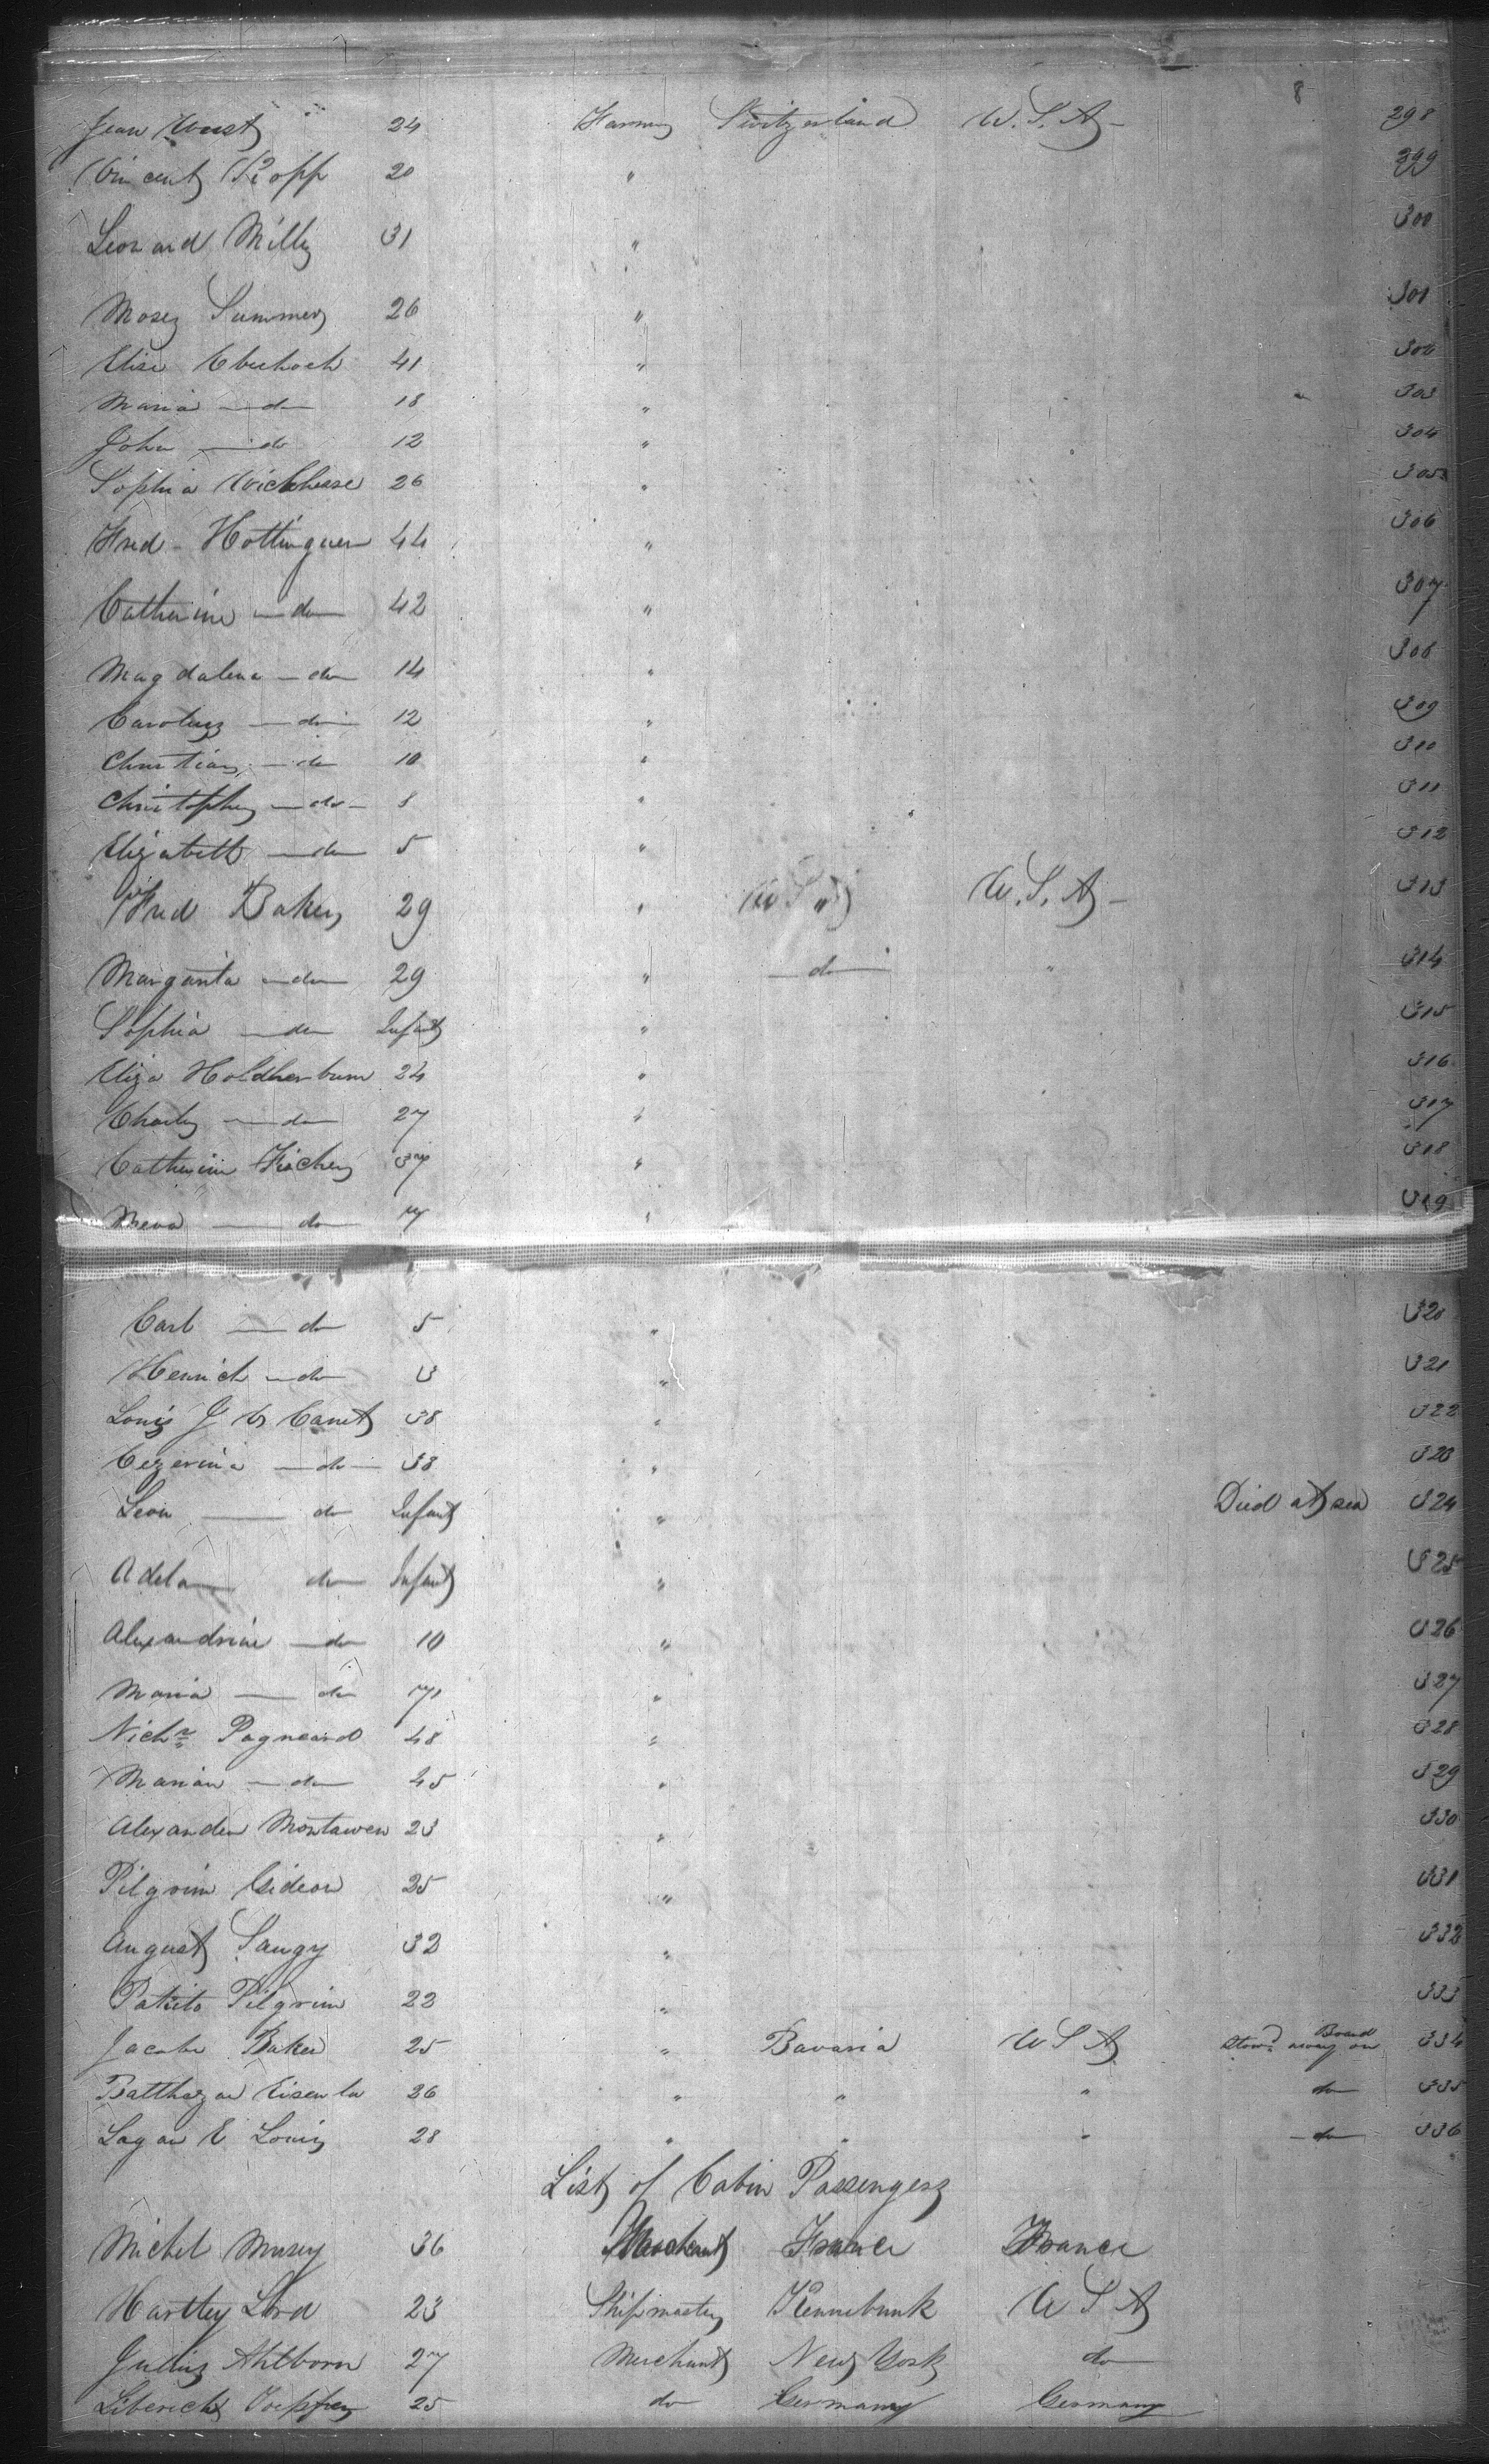 8
Jean Wust 24 Farmer Switzerland U.S.A. 298
Vincent Kopp 20 " 299
Leonard Mills 31 " 300
Moses Summer 26 " 301
Elise 41 " 302
Maria do 18 " 303
John do 12 " 304
Sophia 26 " 305
Fred Hottinguer 44 " 306
Catherine do 42 " 307
Magdalena do 14 " 308
do 12 " 309
Christian do 10 " 310
Christopher do 8 " 311
Elizabeth do 5 " 312
Fred Baker 29 " U.S.A. 313
Margarita do 29 " do " 314
Sophia do Infant " 315
Eliza 24 " 316
Charles do 27 " 317
Catherine Fischer 37 " 318
do 7 " 319
Carl do 5 " 320
Henrich do 3 " 321
Louis J Canet 38 " 322
Cezerina do 33 " 323
Leon do Infant " Died at sea 324
Adela do Infant " 325
Alexandrine do 10 " 326
Maria do 71 " 327
Nichs Pagneard 48 " 328
Marian do 45 " 329
Alexander 23 " 330
Pilgrim Gideon 25 " 331
August Saugy 32 " 332
Pilgrim 22 " 333
Jacob Baker 25 " Bavaria U S A Stowd away on Board 334
Balthazar 26 " " " do 335
Louis 28 " " " do 336
List of Cabin Passengers
Michel Musey 36 Merchant France France
Hartley Lord 23 Shipmaster Kennebunk U S A
Julius Ahlborn 27 Merchant New York do
25 do Germany Germany